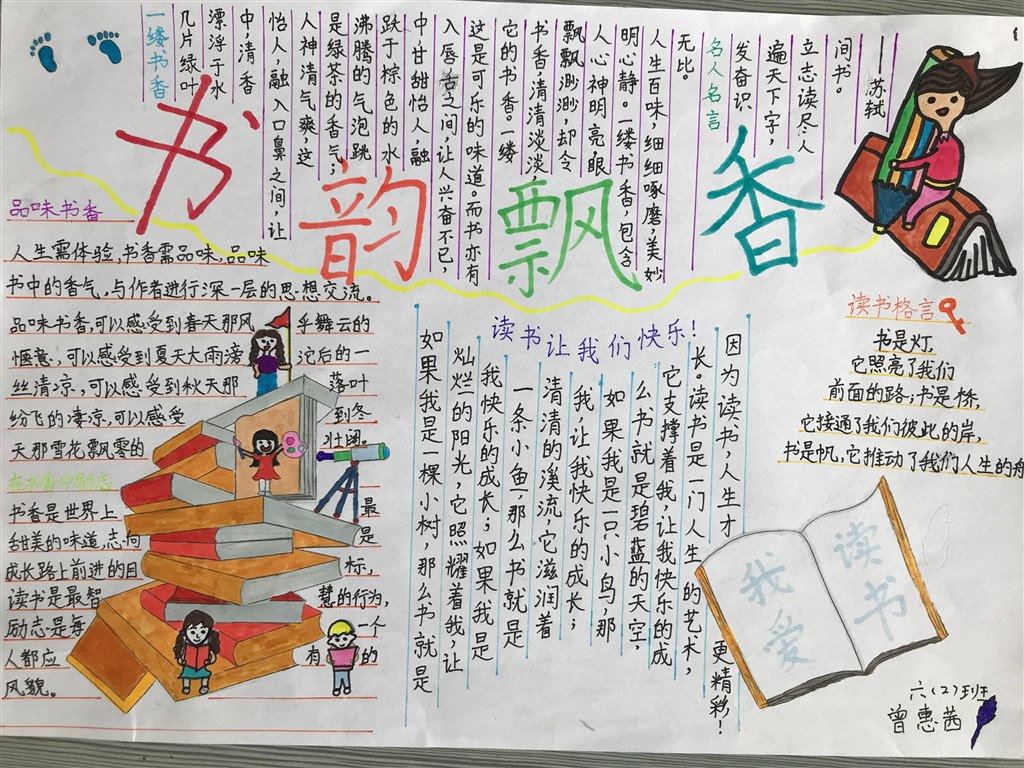 一缕书香
几片绿叶
漂浮于水
中,清香
怡人,融入口鼻之间,让
人神清气爽,这
是绿茶的香气;
沸腾的气泡跳
跃于棕色的水
中甘甜怡人,融
入唇舌之间,让人兴奋不已,
这是可乐的味道。而书亦有
它的书香。一缕
书香,清清淡淡,
飘飘渺渺,却令
人心神明亮眼
明心静。一缕书香,包含
人生百味,细细啄磨,美妙
无比。
名人名言
发奋识
遍天下字,
立志读尽人
间书。
——苏轼
书韵飘香
品味书香
人生需体验,书香需品味,品味
书中的香气,与作者进行深一层的思想交流。
品味书香,可以感受到春天那风乎舞云的
惬意,可以感受到夏天大雨滂沱后的一
丝清凉,可以感受到秋天那落叶
纷飞的凄凉,可以感受到冬
天那雪花飘零的壮阔。
在书香中励志
书香是世界上最
甜美的味道,志向是
成长路上前进的目标,
读书是最智慧的行为,
励志是每一人
人都应有的
风貌。
读书让我们快乐!
如果我是一棵小树,那么书就是
灿烂的阳光,它照耀着我,让
我快乐的成长;如果我是
一条小鱼,那么书就是
清清的溪流,它滋润着
我,让我快乐的成长;
如果我是一只小鸟,那
么书就是碧蓝的天空,
它支撑着我,让我快乐的成
长,读书是一门人生的艺术,
因为读书,人生才更精彩!
读书格言
书是灯,
它照亮了我们
前面的路;书是桥,
它接通了我们彼此的岸,
书是帆,它推动了我们人生的舟
我爱
读书
六(2)班
曾惠茜